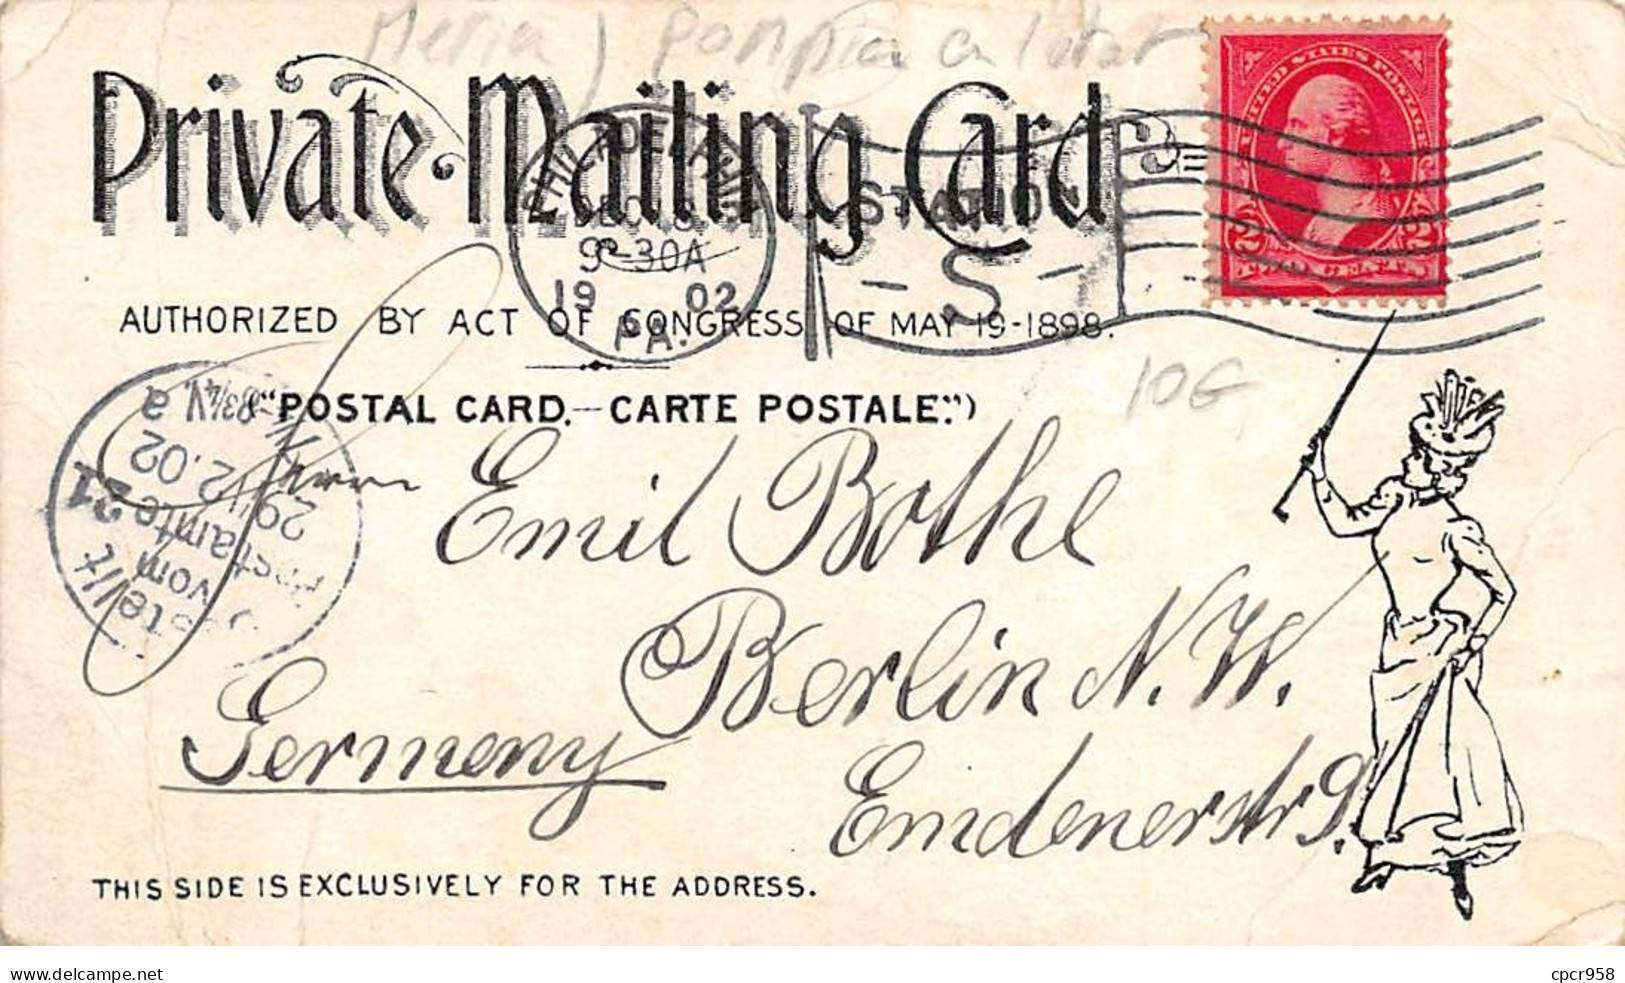 Private Mailing Card
UNITED STATES POSTAGE
2 2
PHILADELPHIA
9-30A
1902
PA.
STATION
-S-
AUTHORIZED BY ACT OF CONGRESS OF MAY 19-1898.
10G
("POSTAL CARD.—CARTE POSTALE.")
Herrn
Emil Bothe
Bestellt
vom
Postamte 21
29.12.02
8-8¾V.
Berlin N.W.
Germeny
Emdenerstr 9.
THIS SIDE IS EXCLUSIVELY FOR THE ADDRESS.
www.delcampe.net
cpcr958